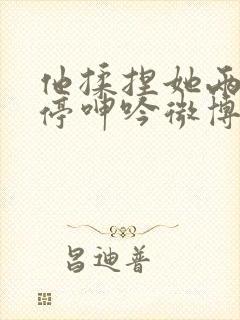 他揉捏她两
停呻吟微博
昌迪普